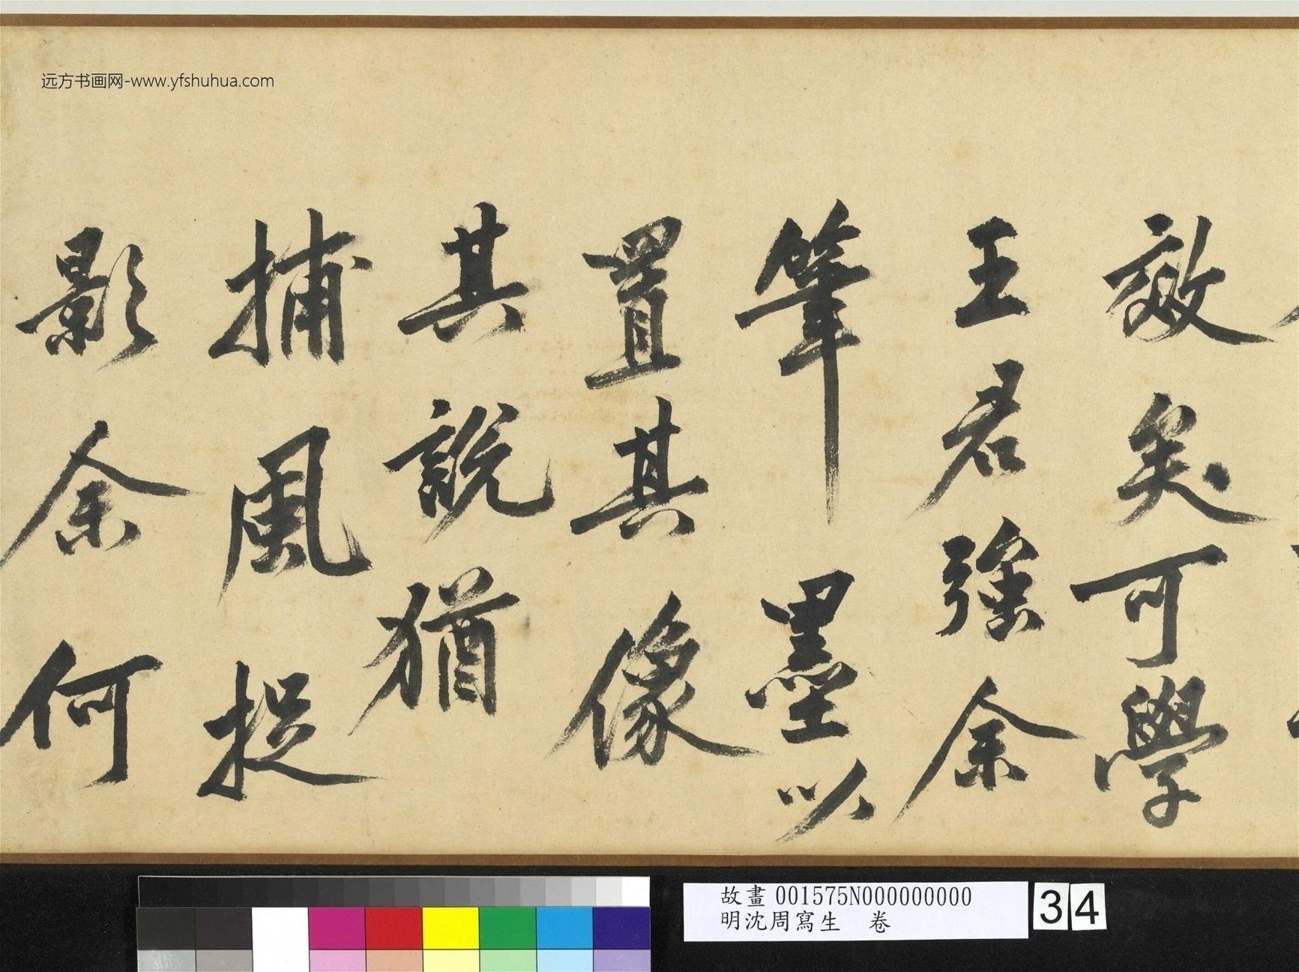 远方书画网-www.yfshuhua.com
效矣可學
王君強余
筆墨以
置其像
其說猶
捕風捉
影余何
故畫 001575N000000000
明沈周寫生 卷
34